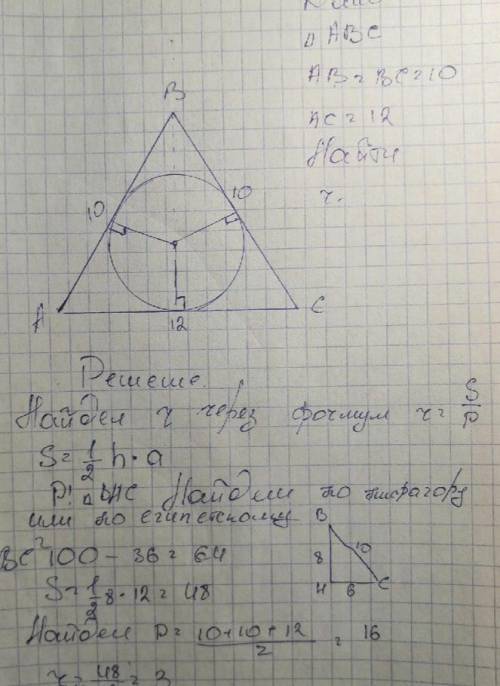 △ ABC
AB = BC = 10
AC = 12
Найти
r.
B
10
10
A
12
C
Решение.
Найдем r через формул r = S/P
S = 1/2 h · a
P! △ Найдем по пифагору
или по египетскому
BC² 100 - 36 = 64
S = 1/2 8 · 12 = 48
B
8
10
H
6
C
Найдем P = (10+10+12)/2 = 16